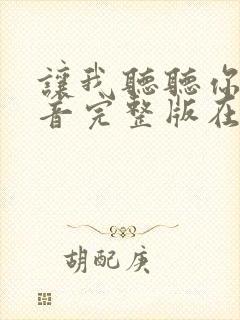 讓我聽聽你
音完整版在
胡配庚